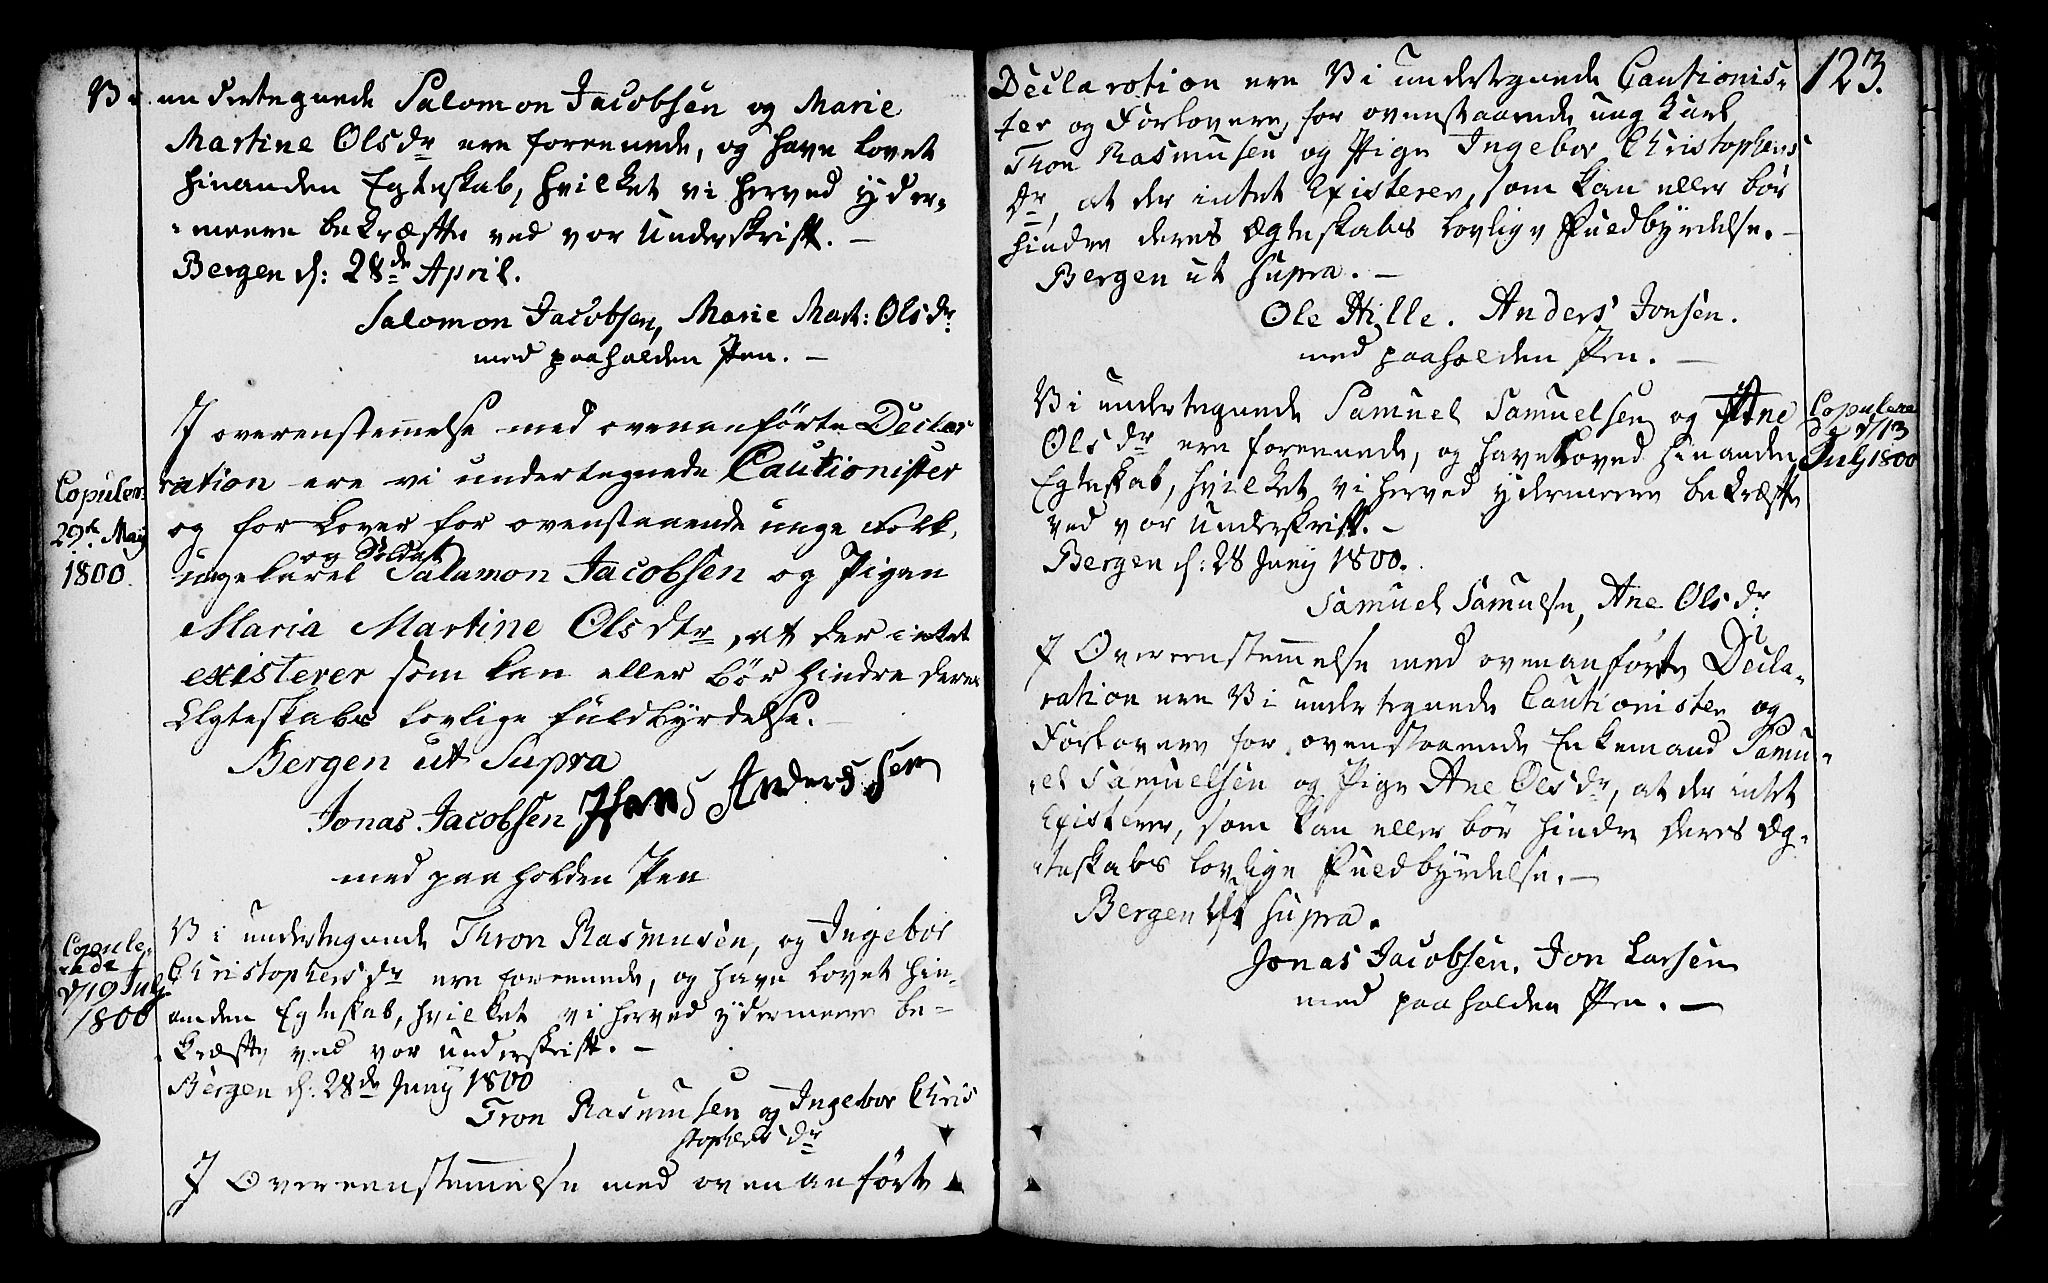 Vi undertegnede Salomon Jacobsen og Marie
Martine Olsdr ere foreenede, og have lovet
hinanden Egteskab, hvilket vi herved yder-
meere bekræfte ved vor Underskrift. —
Bergen d: 28de April.
Salomon Jacobsen, Marie Mart: Olsdr
med paaholden Pen. —
I overenstemmelse med ovenanførte Decla-
ration ere vi undertegnede Cautionister
og forLover for ovenstaaende unge Folk,
og Soldat
ungekarel Salamon Jacobsen og Pigen
Maria Martine Olsdtr, at der intet
existerer som kan eller bør hindre deres
Egteskabs lovlige fuldbyrdelse. —
Bergen ut Supra
Jonas Jacobsen Jhans Anderssen
med paaholden Pen
Copuler:
29de May
1800.
Vi undertegnede Thron Rasmusen, og Ingebor
Christophersdr ere foreenede, og have lovet hin-
anden Egteskab, hvilket vi herved ydermeere be-
kræfte ved vor underskrift. —
Bergen d: 28de Juny 1800
Tron Rasmusen og Ingebor Chris
stophersdr
Copule-
rede
d/19 July
1800
I Overeenstemmelse med ovenanførte
123.
Declaration ere Vi undertegnede Cautionis-
ter og Forlovere, for ovenstaaende ung karl
Thron Rasmusen og Pige Ingebor Christophers
dr, at der intet Existerer, som kan eller bør
hindre deres Ægteskabs lovlige Fuldbyrdelse. —
Bergen ut supra. —
Ole Hille. Anders Jonsen.
med paaholden Pen. —
Vi undertegnede Samuel Samuelsen og Ane
Olsdr ere foreenede, og have Loved hinanden
Egteskab, hvilket vi herved ydermeere bekræfte
ved vor Underskrift. —
Bergen d: 28 Juny 1800.
Samuel Samulsen, Ane Olsdr
Copulere
de d/13
July 1800
I Overeenstemmelse med ovenanførte Decla-
ration ere Vi undertegnede Cautionister og
Forlovere for ovenstaaende Enkemand Samu-
el Samuelsen og Pige Ane Olsdr, at der intet
Existerer, som kan eller bør hindre deres Æg-
teskabs lovlige Fuldbyrdelse. —
Bergen Ut supra.
Jonas Jacobsen. Jon Larsen
med paaholden Pen. —